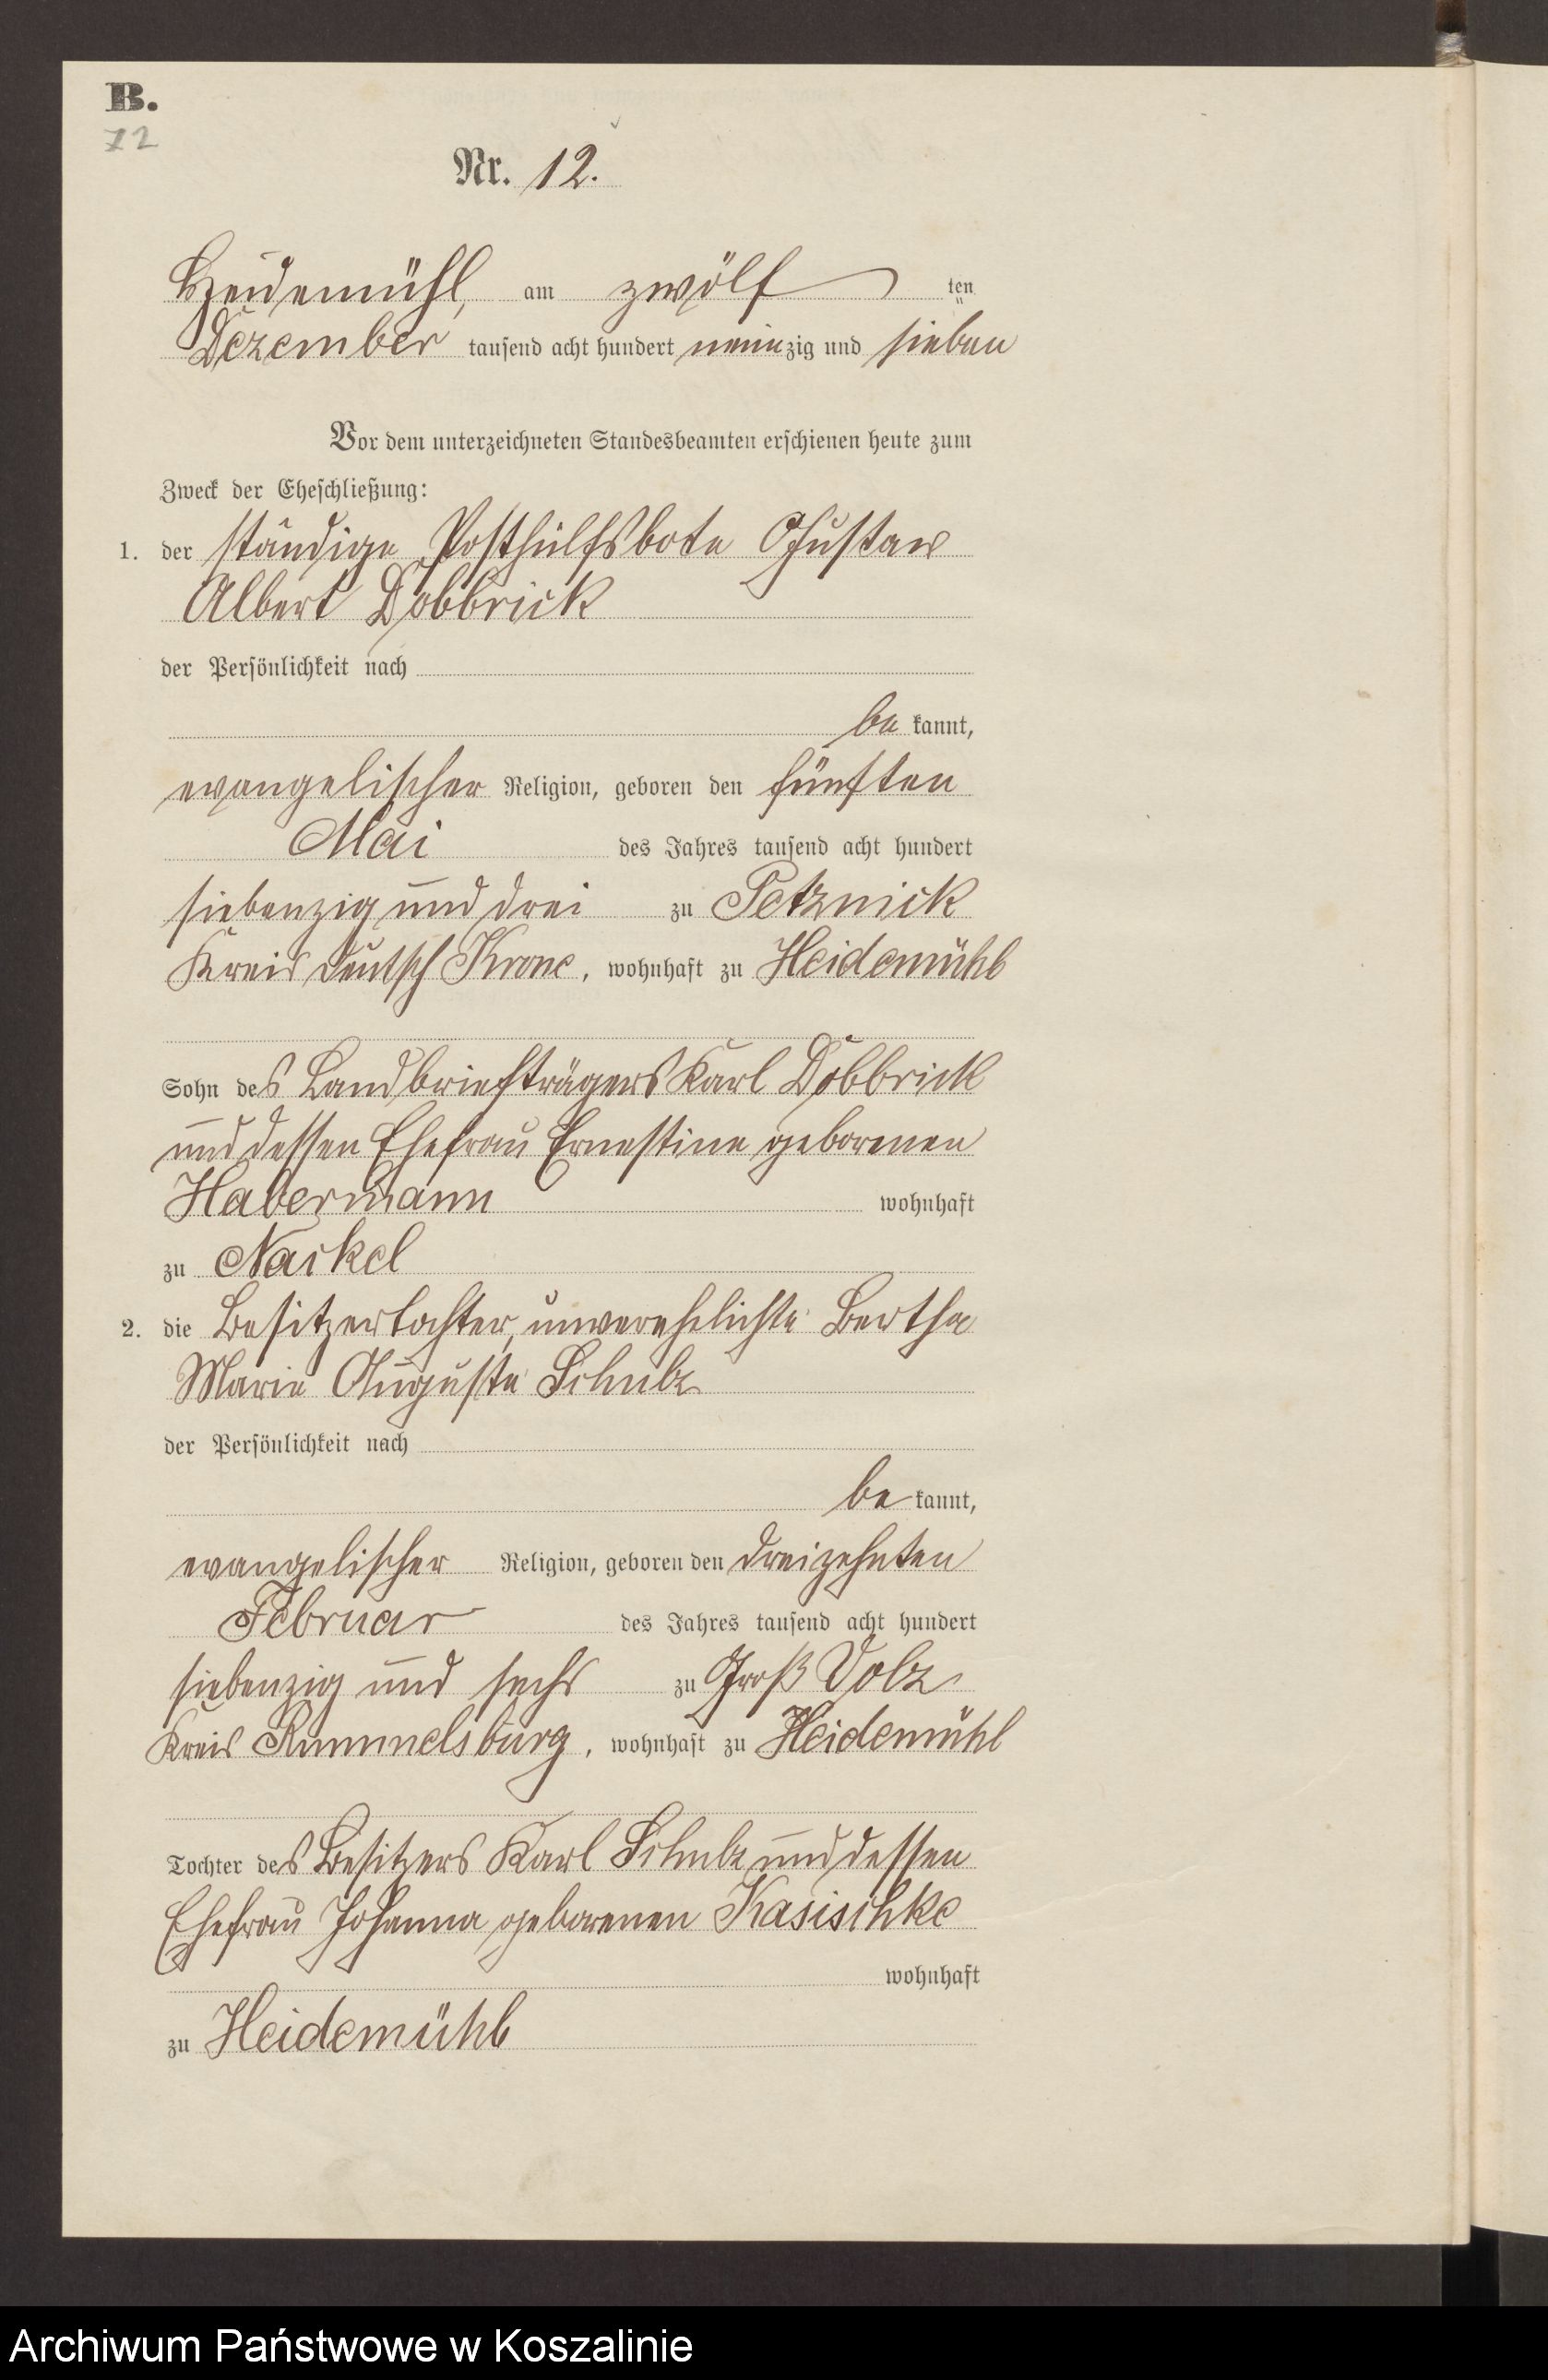 B.
72
Nr. 12.
Heidemühl, am zwölf ten
Dezember tausend acht hundert neunzig und sieben
Vor dem unterzeichneten Standesbeamten erschienen heute zum
Zweck der Eheschließung:
1. der ständige Posthülfsbote Gustav
Albert Dobbrick
der Persönlichkeit nach
be kannt,
evangelischer Religion, geboren den fünften
Mai des Jahres tausend acht hundert
siebenzig und drei zu Petznick
Kreis deutsch Krone, wohnhaft zu Heidemühl
Sohn des Landbriefträgers Karl Dobbrick
und dessen Ehefrau Ernestine geborenen
Habermann wohnhaft
zu Nackel
2. die Besitzertochter, unverehelichte Bertha
Marie Auguste Schulz
der Persönlichkeit nach
be kannt,
evangelischer Religion, geboren den dreizehnten
Februar des Jahres tausend acht hundert
siebenzig und sechs zu Groß Volz
Kreis Rummelsburg, wohnhaft zu Heidemühl
Tochter des Besitzers Karl Schulz und dessen
Ehefrau Johanna geborenen Kasischke
wohnhaft
zu Heidemühl
Archiwum Państwowe w Koszalinie